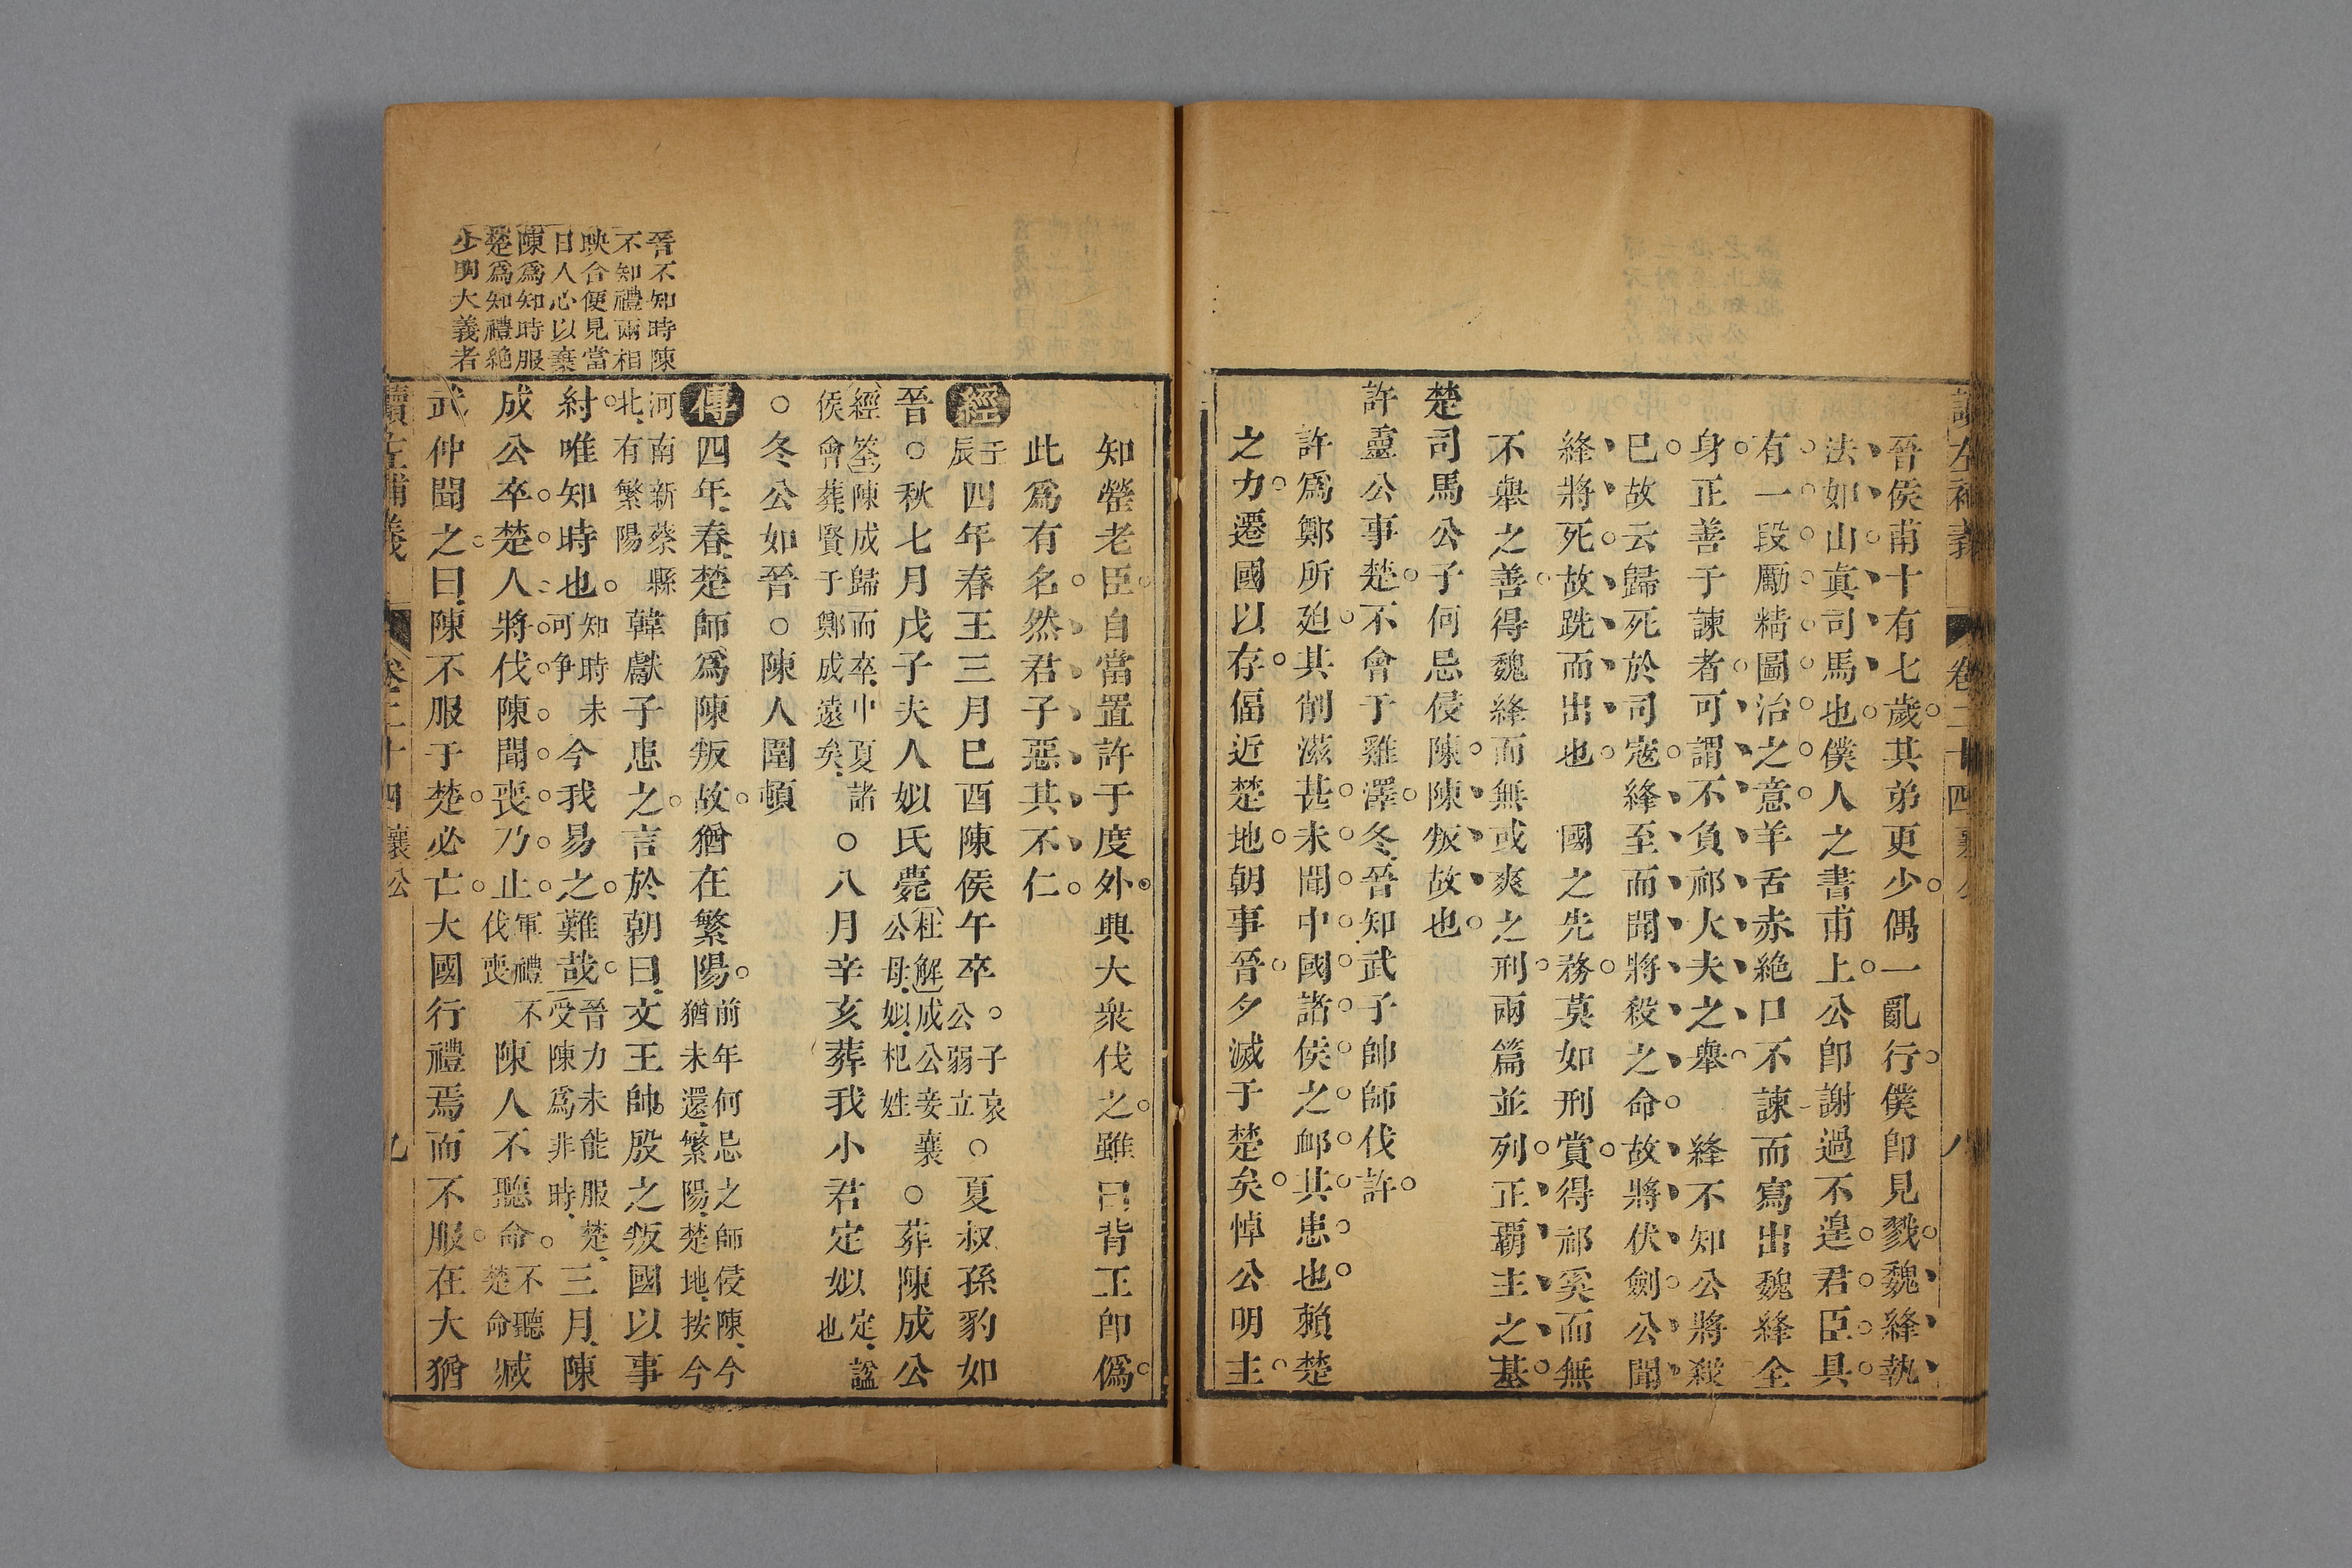 讀左補義
卷二十四 襄公
八
晉侯甫十有七歲其弟更少偶一亂行僕卽見戮魏絳執
法如山真司馬也僕人之書甫上公卽謝過不遑君臣具
有一段勵精圖治之意羊舌赤絕口不諫而寫出魏絳全
身正善于諫者可謂不負祁大夫之舉 絳不知公將殺
巳故云歸死於司寇絳至而聞將殺之命故將伏劍公聞
絳將死故跣而出也 國之先務莫如刑賞得祁奚而無
不舉之善得魏絳而無或爽之刑兩篇並列正覇主之基
楚司馬公子何忌侵陳陳叛故也
許靈公事楚不會于雞澤冬晉知武子帥師伐許
許爲鄭所廹其削滋甚未聞中國諸侯之邮其患也賴楚
之力遷國以存偪近楚地朝事晉夕滅于楚矣悼公明主
知罃老臣自當置許于度外興大衆伐之雖曰背王卽僞
此爲有名然君子惡其不仁
經壬辰四年春王三月巳酉陳侯午卒。子哀公弱立○夏叔孫豹如
晉○秋七月戊子夫人姒氏薨杜解成公妾襄公母姒杞姓○葬陳成公
經筌陳成歸而卒中夏諸侯會葬賢于鄭成遠矣○八月辛亥葬我小君定姒定諡也
○冬公如晉○陳人圍頓
傳四年春楚師爲陳叛故猶在繁陽前年何忌之師侵陳今猶未還繁陽楚地按今
河南新蔡縣北有繁陽韓獻子患之言於朝曰文王帥殷之叛國以事
紂唯知時也知時未可爭今我易之難哉晉力未能服楚受陳爲非時三月陳
成公卒楚人將伐陳聞喪乃止軍禮不伐喪陳人不聽命不聽楚命臧
武仲聞之曰陳不服于楚必亡大國行禮焉而不服在大猶
晉不知時陳
不知禮兩相
映合便見當
日人心以棄
陳爲知時服
楚爲知禮絕
少明大義者
讀左補義
卷二十四 襄公
九